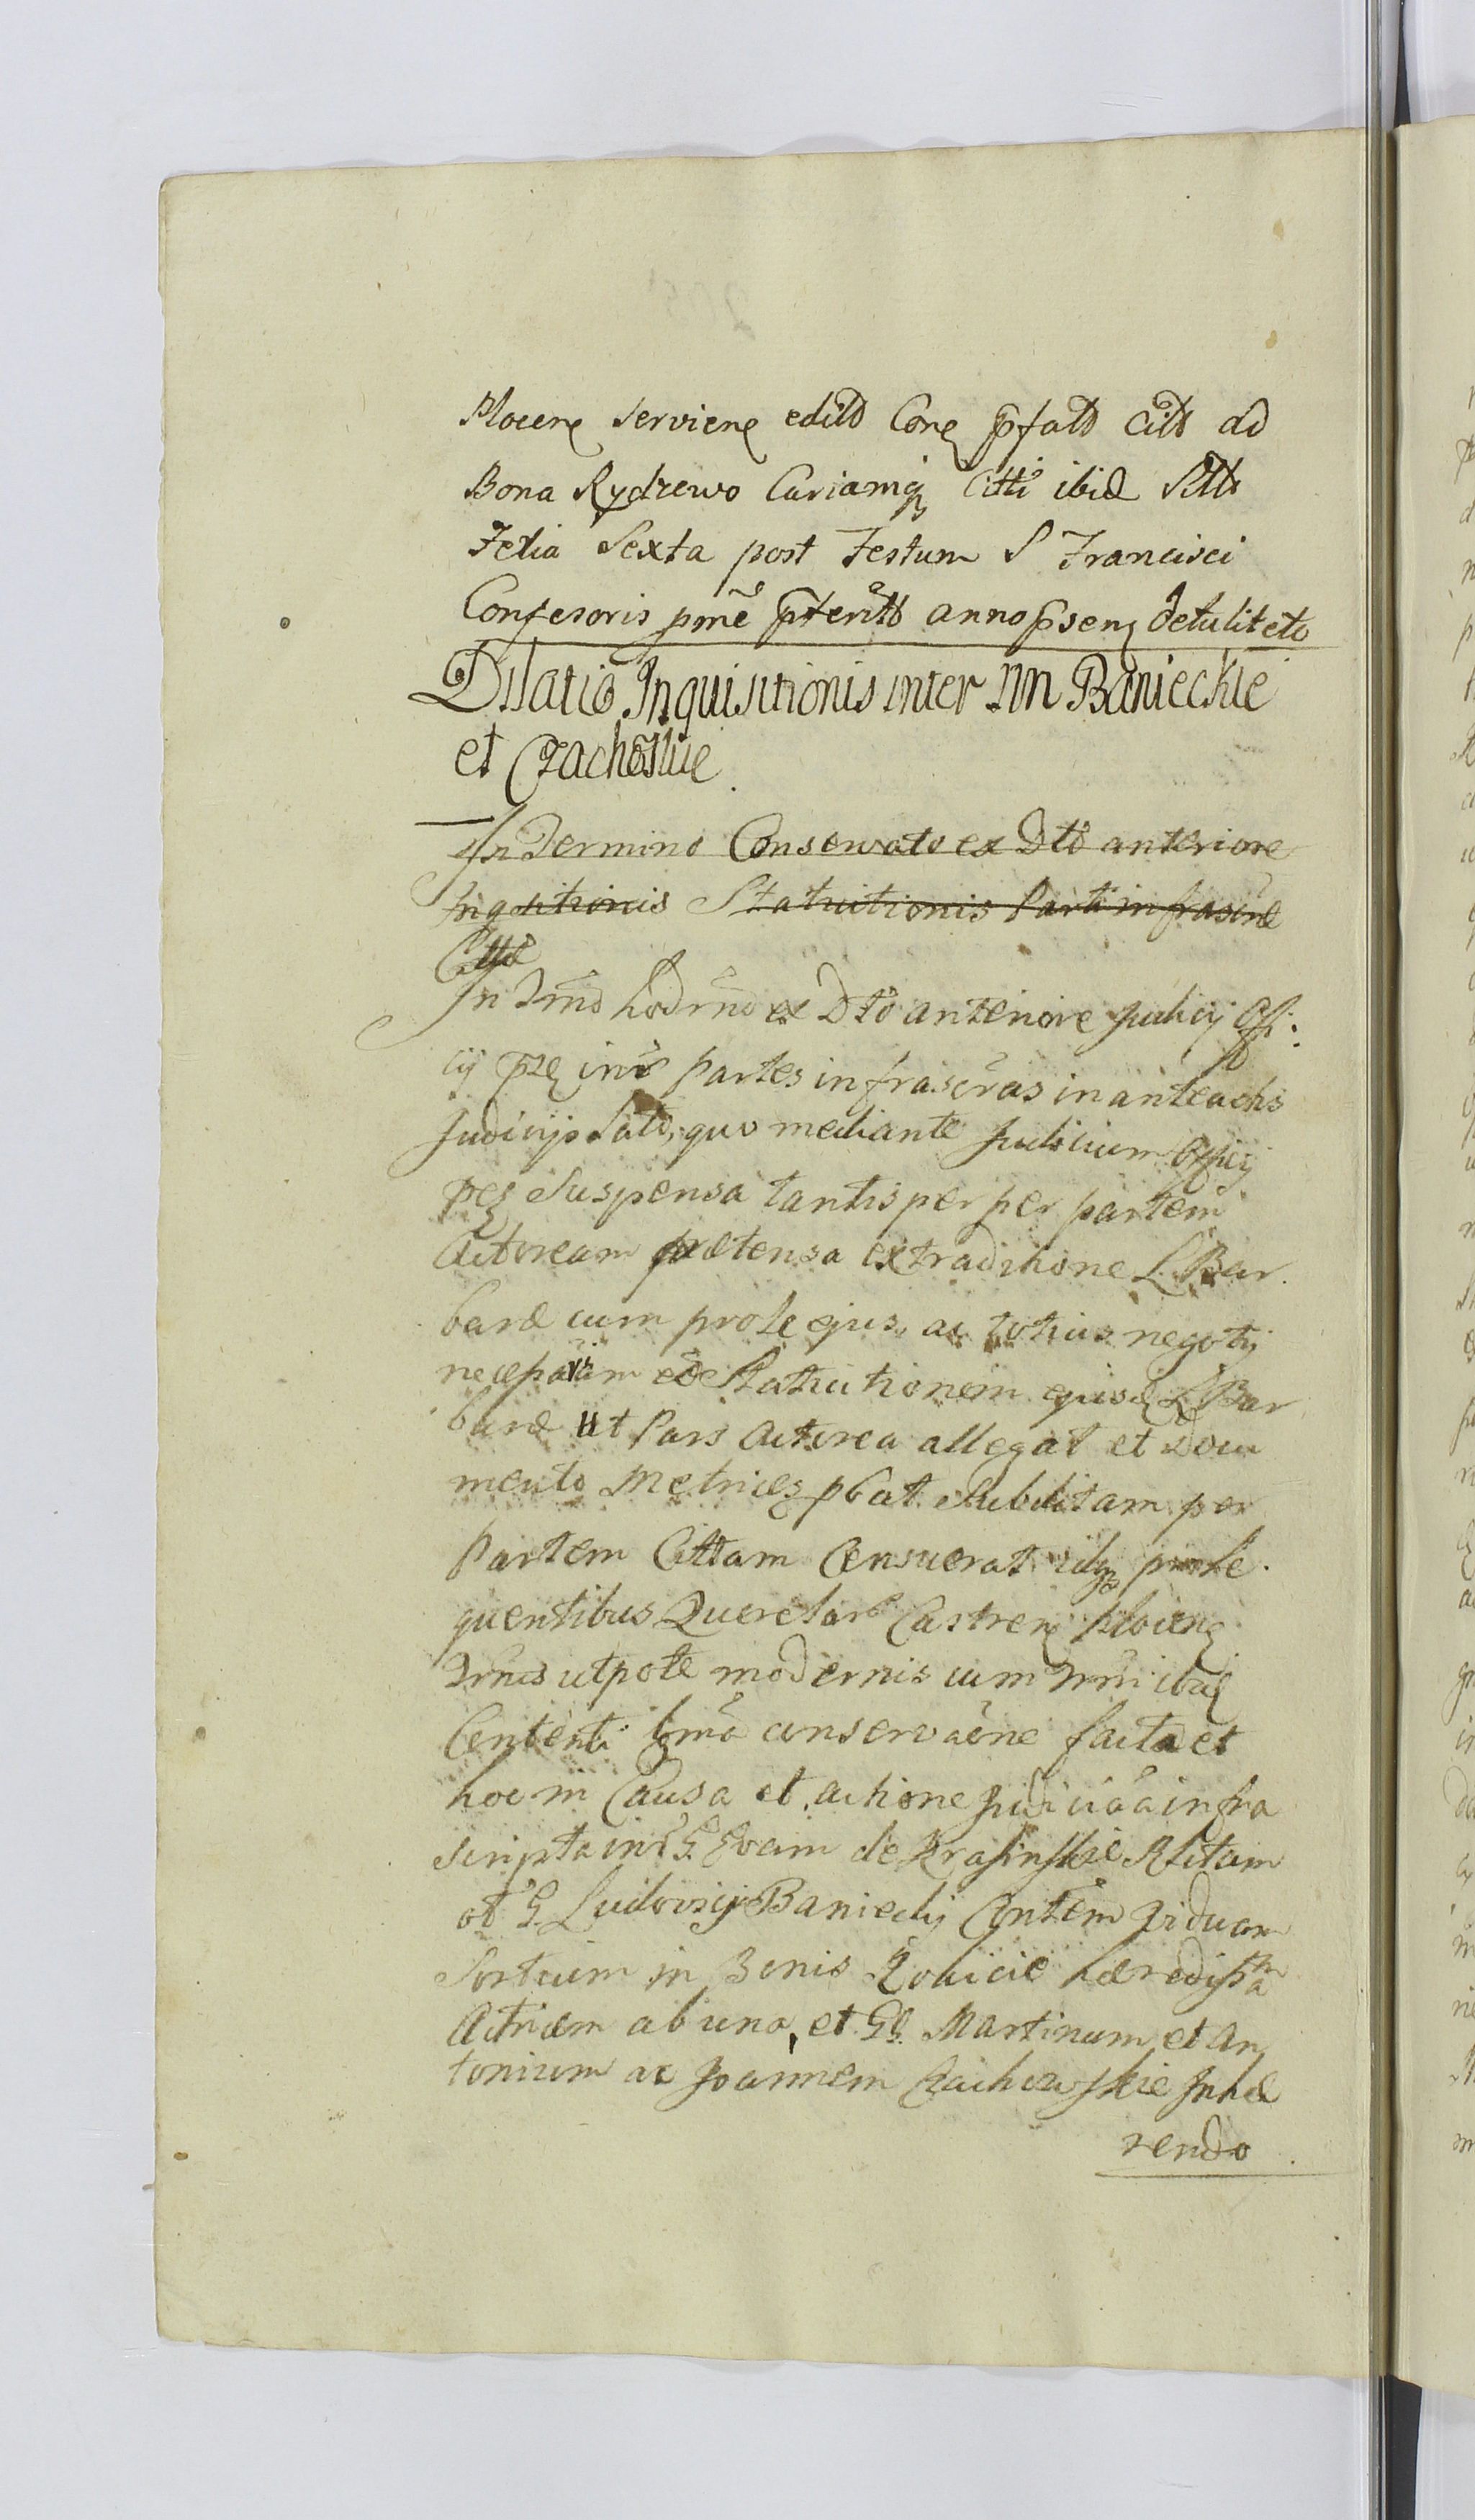 Plocen serviens edito Cone pfato citto ad
Bona Rydzewo Curiamq Citti ibid sitto
Feria Sexta post Festum S Francisci
Confesoris pme pterito anno psen detulit etc
Dilatio Inquisitionis inter NN Banieckie
et Czachoskie
In Termino Conservato ex Dto anteriore
Inqsitionis Statuitionis Parti infrascrae
In Tmo hodrno ex Dto anteriore Judicij Offi:
cij pns intr partes infrascras in anteactis
Judicijs Lato, quo mediante Judicium Officij
pns Suspensa tantisper per partem
Actoream praetensa extraditione L Bar
barae cum prole ejus, ac totius negotij
Statuitionem ejusd L Bar
barae ut Pars Actorea allegat et docu
mento Metrices pbat Subditam per
Partem Cittam Censuerat idq prose
quentibus Querelar Castren Plocen
Trnis utpote modernis cum Trni ibid
Contenti bma conservaone facta et
hoc in Causa et actione Judiciaa infra
scripta intr G. Evam de Krasinskie Rlitam
ol G. Ludovici Baniecky Contem Viduam
Sortium in Bonis haeredissam
Actricem ab una, et GG. Martinum et An
tonium ac Joannem Czachowskie Inhae
rendo